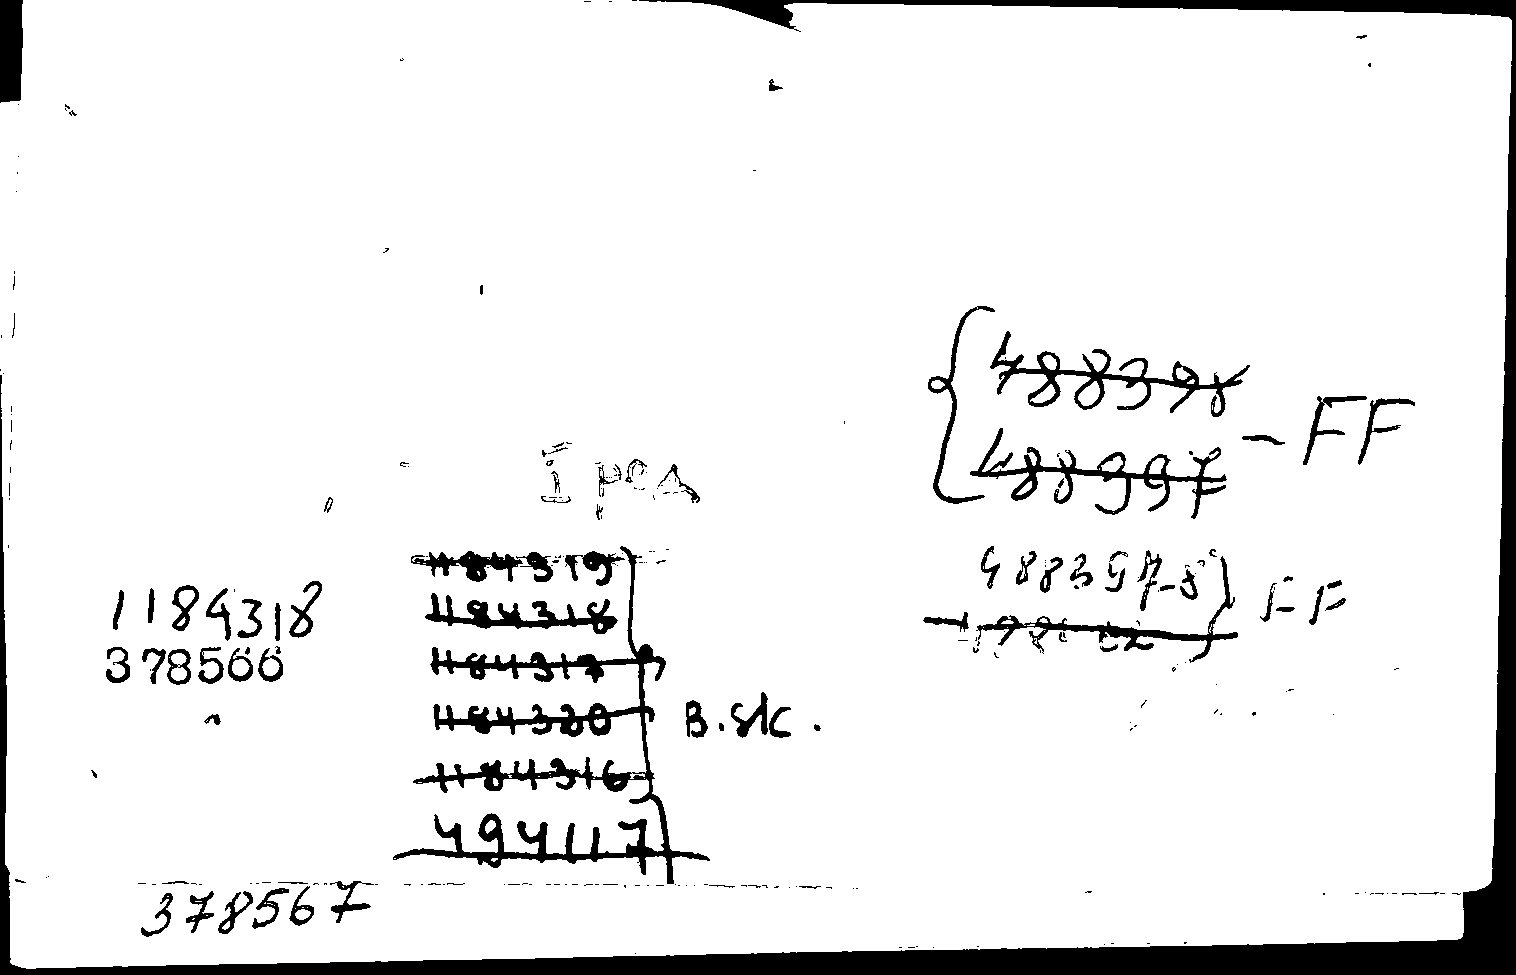 488398
488397 - FF
I pcs
488397-8 } FF
1184319
1184318
1184317
1184320
1184316
494117
B.stc.
1184318
378566
378567